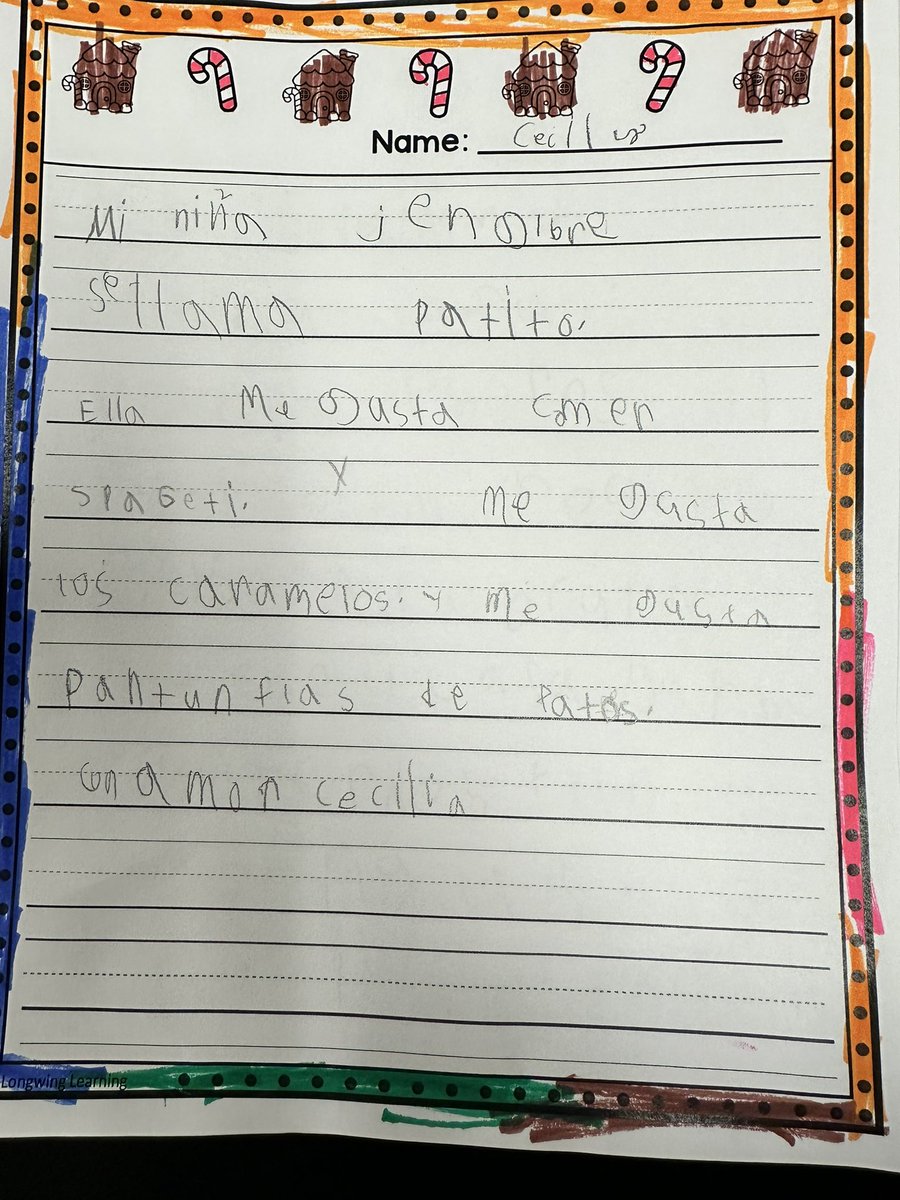 Name: Cecilia
Mi niña jengibre
se llama patito.
Ella Me gusta comer
spageti. y me gusta
los caramelos. y me gusta
pantunflas de patos.
con amor cecilia
Longwing Learning